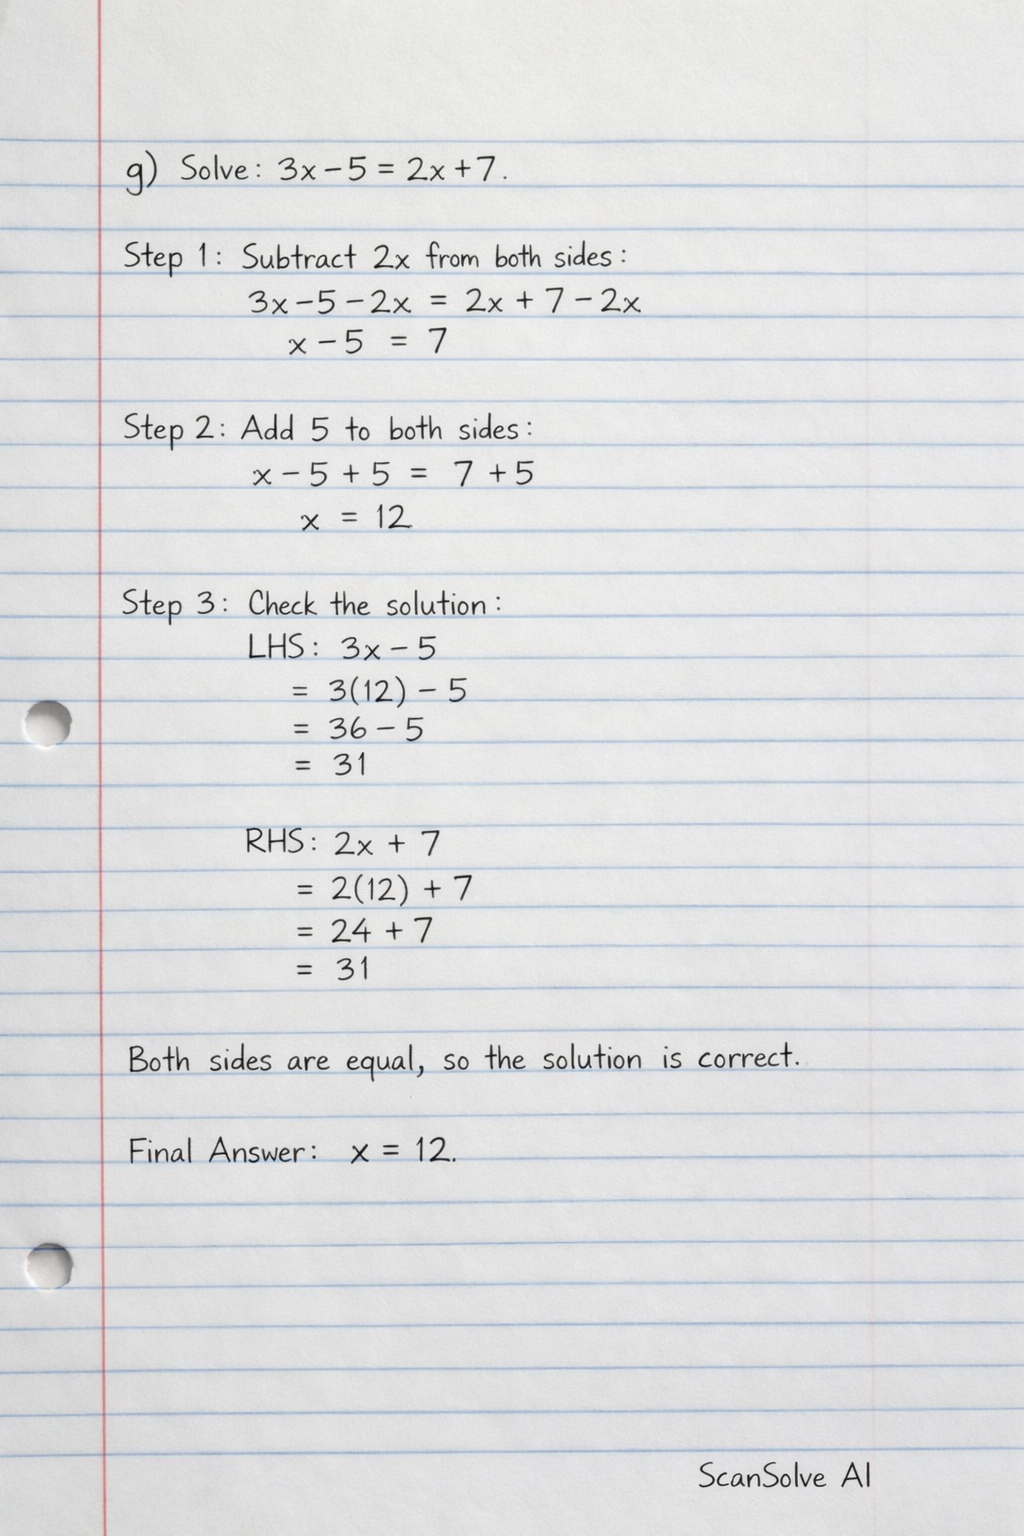 g) Solve: 3x - 5 = 2x + 7.
Step 1: Subtract 2x from both sides:
3x - 5 - 2x = 2x + 7 - 2x
x - 5 = 7
Step 2: Add 5 to both sides:
x - 5 + 5 = 7 + 5
x = 12
Step 3: Check the solution:
LHS: 3x - 5
= 3(12) - 5
= 36 - 5
= 31
RHS: 2x + 7
= 2(12) + 7
= 24 + 7
= 31
Both sides are equal, so the solution is correct.
Final Answer: x = 12.
ScanSolve AI